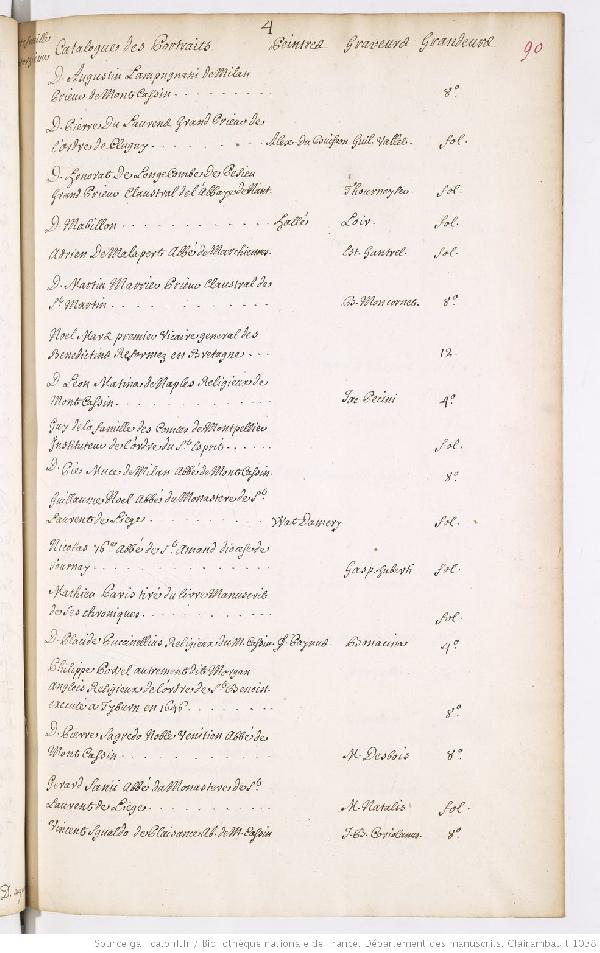 4
90
Catalogue des Portraits Peintres Graveurs Grandeurs
D. Augustin Lampugnani de Milan
Prieur de Mont Cassin 8°
D. Pierre Du Laurens Grand Prieur de
l'ordre de Clugny Alex. du Buisson Guil. Vallet. fol.
D. Honorat De Longe Combe De Pesieu
Grand Prieur Claustral de l'Abbaye de Nant. Thourneysen fol.
D. Mabillon Hallés Loir. fol.
Adrien De Malapert Abbé de Marchiennes Est. Gantrel. fol.
D. Martin Marrier Prieur Claustral de
St. Martin B. Moncornet. 8°
Noel Mars premier Vicaire general des
Benedictins Reformez en Bretagne 12
D. Léon Matina de Naples Religieux de
Mont Cassin Jac Pecini 4°
Guy de la famille des Comtes de Montpellier
Instituteur de l'ordre du St. Esprit fol.
D. Pie Muce de Milan Abbé de Mont Cassin 8°
Guillaume Noel Abbé du Monastere de St.
Laurent de Liege Wat Damery fol.
Nicolas 76me Abbé de St. Amand diocese de
Tournay Gasp. Huberti fol.
Mathieu Paris tiré du livre Manuscrit
de ses chroniques fol.
D. Placide Puccinellius Religieux du M. Cassin Bonacina 4°
Philippe Powel autrement dit Morgan
Anglois Religieux de l'ordre de St. Benoist
executé a Tyburn en 1646 8°
D. Pierre Sagredo Noble Venitien Abbé de
Mont Cassin M. Desbois 8°
Gerard Sanii Abbé du Monastere de St.
Laurent de Liege M. Natalis fol.
Vincent Squaldo de Plaisance Ab. de Mt. Cassin J. B. Coriolanus 8°
Source gallica.bnf.fr / Bibliothèque nationale de France. Département des manuscrits. Clairambault 1038